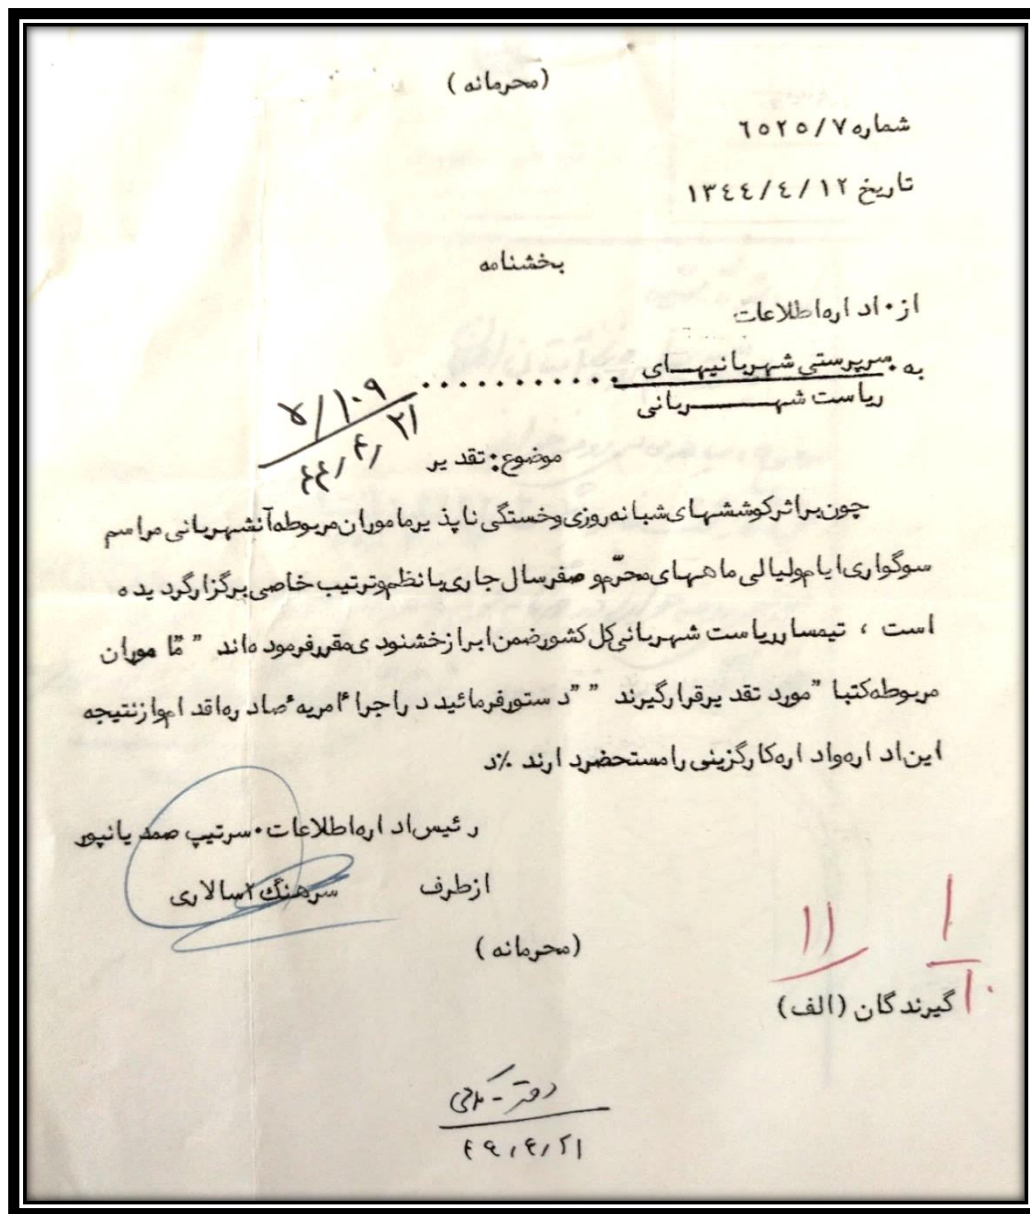 (محرمانه)
شماره ۶۵۲۵/۷
تاریخ ۱۳۴۴/۴/۱۲
بخشنامه
از۰ اداره اطلاعات
به ۰ سرپرستی شهربانیهای ............
ریاست شهربانی
۵/۱۰۹
۴۴/۴/۲۱
موضوع۰ تقدیر
چون براثر کوششهای شبانه روزی و خستگی ناپذیر ماموران مربوطه آنشهربانی مراسم
سوگواری ایام و لیالی ماههای محرّم و صفر سال جاری با نظم و ترتیب خاصی برگزار گردیده
است ، تیمسار ریاست شهربانی کل کشور ضمن ابراز خشنودی مقرر فرموده اند " مأموران
مربوطه کتبا" مورد تقدیر قرار گیرند " " دستور فرمائید در اجراء امریه صادره اقدام و از نتیجه
این اداره و اداره کارگزینی را مستحضر دارند ٪د
رئیس اداره اطلاعات۰ سرتیپ صمدیانپور
از طرف سرهنگ ۲ سالاری
(محرمانه)
۱۱
۱
۱۰
گیرندگان (الف)
دفتر -
۴۴/۴/۲۱